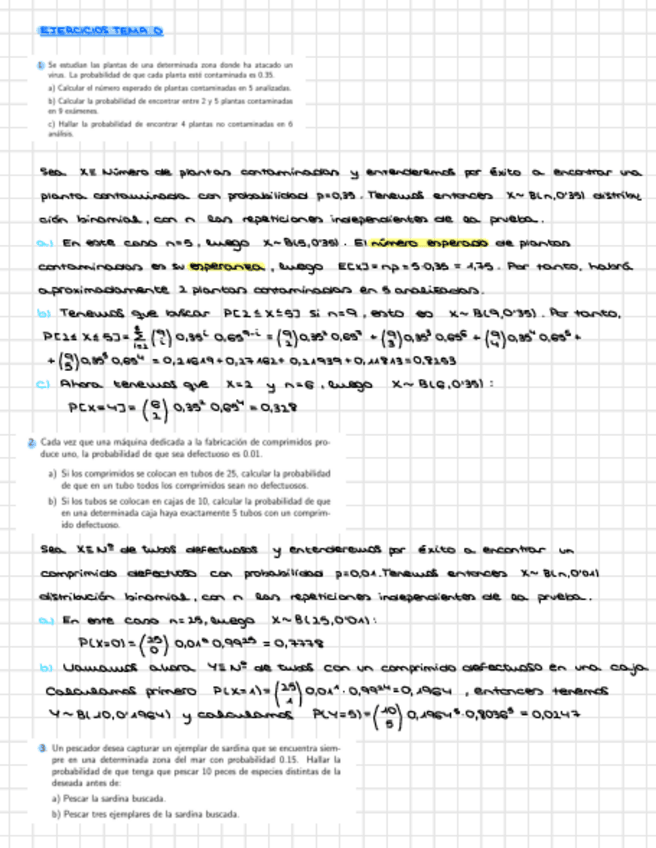 EJERCICIOS TEMA 0
1. Se estudian las plantas de una determinada zona donde ha atacado un
virus. La probabilidad de que cada planta esté contaminada es 0.35.
a) Calcular el número esperado de plantas contaminadas en 5 analizadas.
b) Calcular la probabilidad de encontrar entre 2 y 5 plantas contaminadas
en 9 exámenes.
c) Hallar la probabilidad de encontrar 4 plantas no contaminadas en 6
análisis.
Sea X≡ Número de plantas contaminadas y entenderemos por éxito a encontrar una
planta contaminada con probabilidad p=0,35. Tenemos entonces X~ B(n,0'35) distribu
ción binomial, con n las repeticiones independientes de la prueba.
a) En este caso n=5, luego X~B(5,0'35). El número esperado de plantas
contaminadas es su esperanza, luego E[X]=np=5·0,35 = 1,75. Por tanto, habrá
aproximadamente 2 plantas contaminadas en 5 analizadas.
b) Tenemos que buscar P[2≤X≤5] si n=9, esto es X~B(9,0'35). Por tanto,
P[2≤X≤5]= Σ (9 i) 0,35^i 0,65^9-i = (9 2) 0,35² 0,65⁷ + (9 3) 0,35³ 0,65⁶ + (9 4) 0,35⁴ 0,65⁵ +
+ (9 5) 0,35⁵ 0,65⁴ = 0,21619+0,27162+0,21939+0,11813=0,8253
c) Ahora tenemos que X=2 y n=6, luego X~B(6,0'35):
P[X=4]= (6 2) 0,35² 0,65⁴ = 0,328
2. Cada vez que una máquina dedicada a la fabricación de comprimidos pro-
duce uno, la probabilidad de que sea defectuoso es 0.01.
a) Si los comprimidos se colocan en tubos de 25, calcular la probabilidad
de que en un tubo todos los comprimidos sean no defectuosos.
b) Si los tubos se colocan en cajas de 10, calcular la probabilidad de que
en una determinada caja haya exactamente 5 tubos con un comprim-
ido defectuoso.
Sea X≡Nº de tubos defectuosos y entenderemos por éxito a encontrar un
comprimido defectuoso con probabilidad p=0,01. Tenemos entonces X~B(n,0'01)
distribución binomial, con n las repeticiones independientes de la prueba.
a) En este caso n=25, luego X~B(25,0'01):
P(X=0)= (25 0) 0,01⁰ 0,99²⁵ = 0,7778
b) Llamamos ahora Y≡Nº de tubos con un comprimido defectuoso en una caja
Calculamos primero P(X=1)= (25 1) 0,01¹·0,99²⁴=0,1964, entonces tenemos
Y~B(10,0'1964) y calculamos P(Y=5)= (10 5) 0,1964⁵·0,8036⁵ = 0,0247
3. Un pescador desea capturar un ejemplar de sardina que se encuentra siem-
pre en una determinada zona del mar con probabilidad 0.15. Hallar la
probabilidad de que tenga que pescar 10 peces de especies distintas de la
deseada antes de:
a) Pescar la sardina buscada.
b) Pescar tres ejemplares de la sardina buscada.